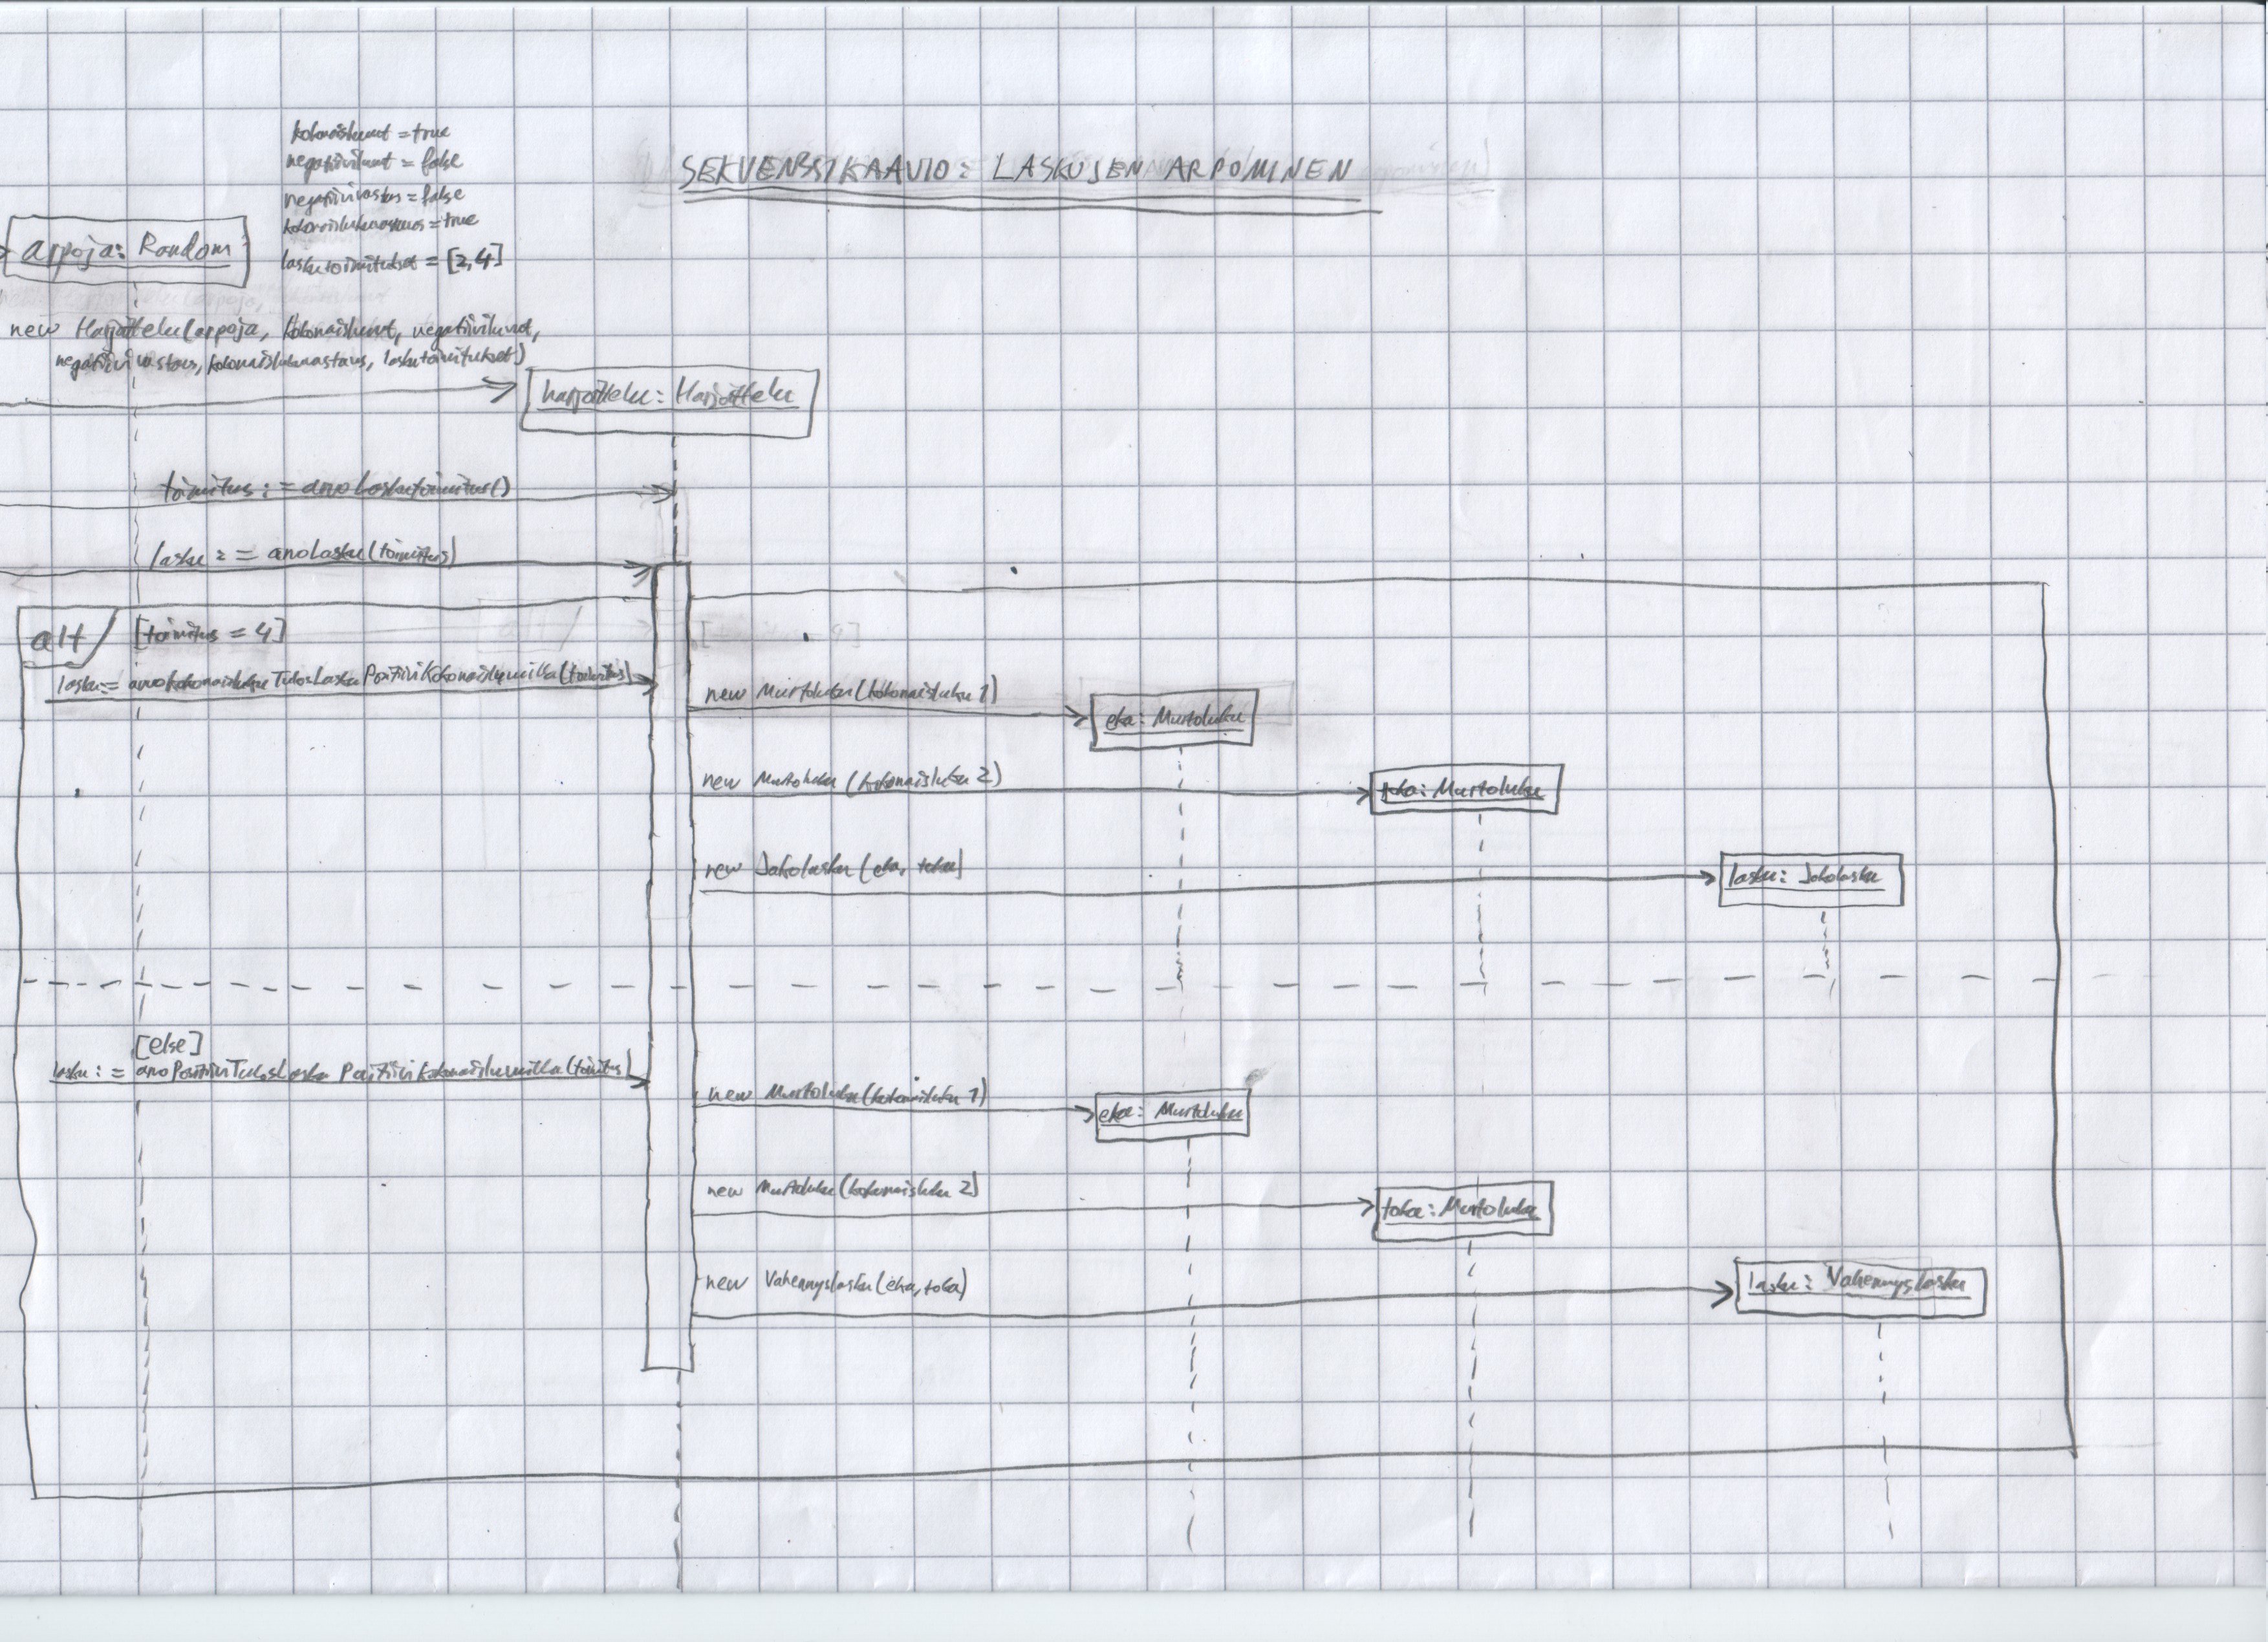 SEKVENSSIKAAVIO: LASKUJEN ARPOMINEN
kokonaisluvut = true
negatiiviluvut = false
negatiivivastaus = false
kokonaislukuvastaus = true
laskutoimitukset = [2,4]
arpoja: Random
new Harjoittelu(arpoja, kokonaisluvut, negatiiviluvut,
negatiivivastaus, kokonaislukuvastaus, laskutoimitukset)
harjoittelu: Harjoittelu
toimitus := arvoLaskutoimitus()
lasku := arvoLasku(toimitus)
alt
[toimitus = 4]
lasku := arvoKokonaislukuTulosLaskuPositiiviKokonaisluvuilla(toimitus)
new Murtoluku(kokonaisluku1)
eka: Murtoluku
new Murtoluku(kokonaisluku2)
toka: Murtoluku
new Jakolasku(eka, toka)
lasku: Jakolasku
[else]
lasku := arvoPositiiviTulosLaskuPositiiviKokonaisluvuilla(toimitus)
new Murtoluku(kokonaisluku1)
eka: Murtoluku
new Murtoluku(kokonaisluku2)
toka: Murtoluku
new Vahennyslasku(eka, toka)
lasku: Vahennyslasku